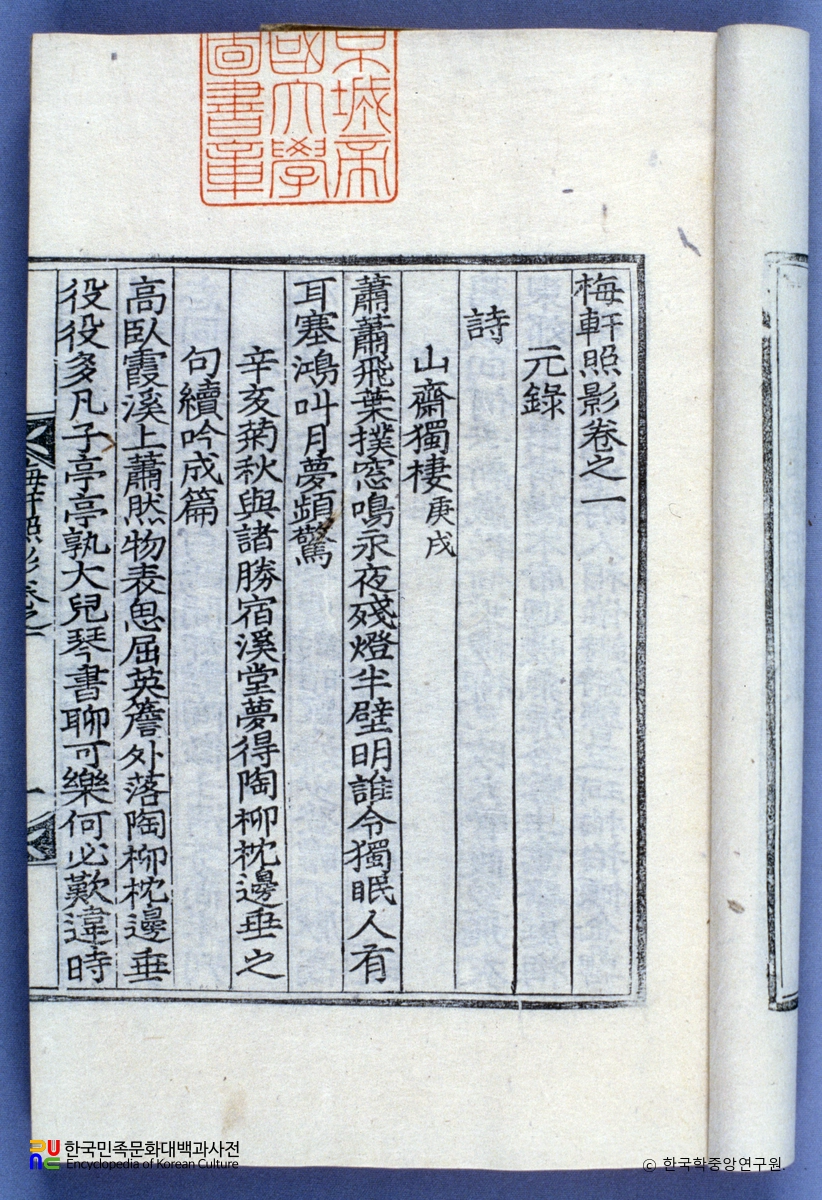 京城帝
國大學
圖書章
梅軒照影卷之一
元錄
詩
山齋獨棲 庚戌
蕭蕭飛葉撲窓鳴永夜殘燈半壁明誰令獨眠人有
耳塞鴻叫月夢頻驚
辛亥菊秋與諸勝宿溪堂夢得陶柳枕邊垂之
句續吟成篇
高臥霞溪上蕭然物表思屈英簷外落陶柳枕邊垂
役役多凡子亭亭孰大兒琴書聊可樂何必歎違時
梅軒照影卷之一
一
한국민족문화대백과사전
Encyclopedia of Korean Culture
© 한국학중앙연구원